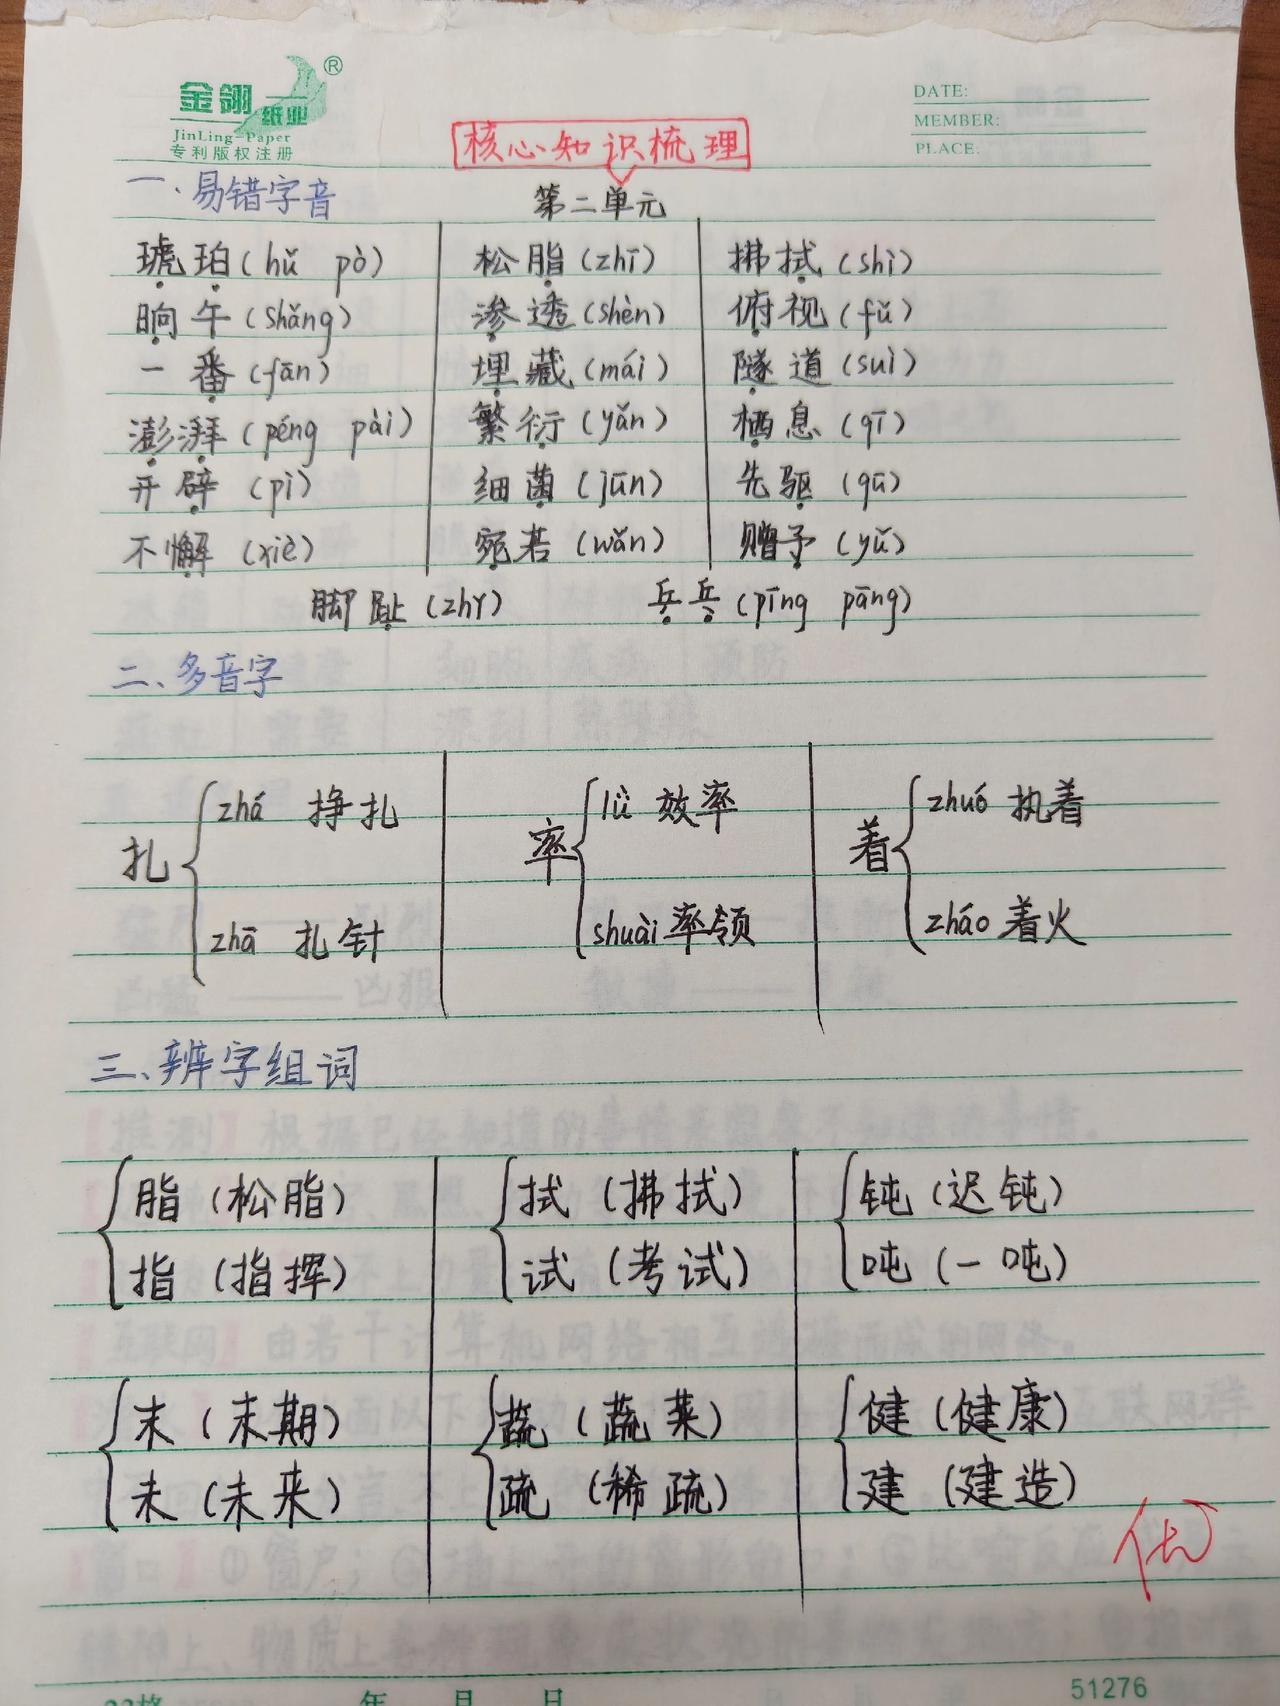 金翎纸业®
JinLing-Paper
专利版权注册
DATE:
MEMBER:
PLACE:
核心知识梳理
一、易错字音
第二单元
琥珀(hǔ pò) 松脂(zhī) 拂拭(shì)
晌午(shǎng) 渗透(shèn) 俯视(fǔ)
一番(fān) 埋藏(mái) 隧道(suì)
澎湃(péng pài) 繁衍(yǎn) 栖息(qī)
开辟(pì) 细菌(jūn) 先驱(qū)
不懈(xiè) 宛若(wǎn) 赠予(yǔ)
脚趾(zhǐ) 乒乓(pīng pāng)
二、多音字
扎 zhá 挣扎 zhā 扎针
率 lǜ 效率 shuài 率领
着 zhuó 执着 zháo 着火
三、辨字组词
脂(松脂) 拭(拂拭) 钝(迟钝)
指(指挥) 试(考试) 吨(一吨)
末(末期) 蔬(蔬菜) 健(健康)
未(未来) 疏(稀疏) 建(建造)
优
年 月 日
51276